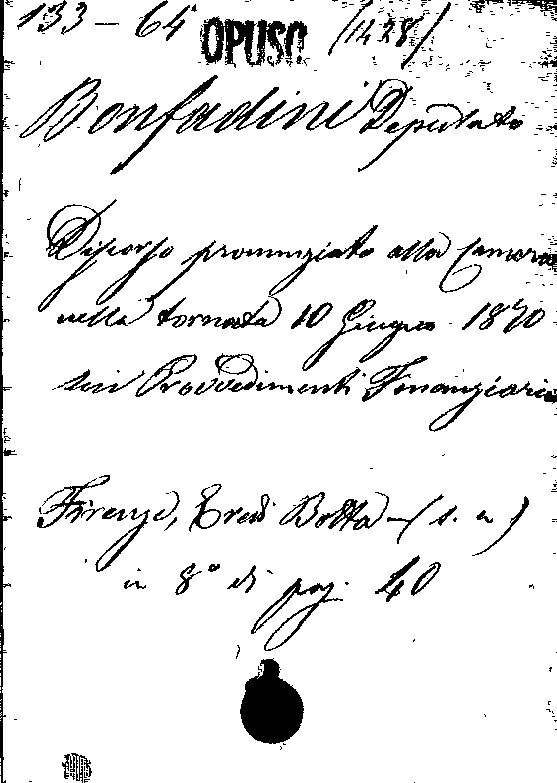 133 - 64 OPUSC. (1428)
Bonfadini Deputato
Discorso pronunziato alla Camera
nella tornata 10 Giugno 1870
sui Provvedimenti Finanziarii
Firenze, Eredi Botta - (s. a)
in 8° di pag. 40